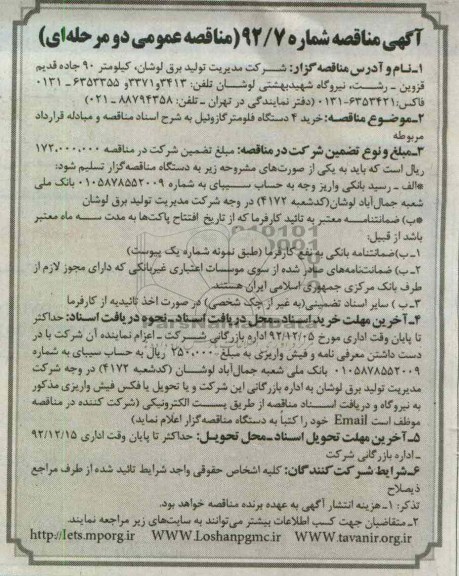 آگهی مناقصه شماره ۹۲/۷ (مناقصه عمومی دو مرحله‌ای)
۱-نام و آدرس مناقصه گزار: شرکت مدیریت تولید برق لوشان، کیلومتر ۹۰ جاده قدیم
قزوین - رشت، نیروگاه شهیدبهشتی لوشان تلفن: ۳۴۱۳و۳۳۷۱و ۶۳۵۳۳۵۵ - ۰۱۳۱
فاکس:۶۳۵۳۴۲۱-۰۱۳۱ (دفتر نمایندگی در تهران ـ تلفن: ۸۸۷۹۴۳۵۸ - ۰۲۱)
۲-موضوع مناقصه: خرید ۴ دستگاه فلومترگازوئیل به شرح اسناد مناقصه و مبادله قرارداد
مربوطه
۳-مبلغ و نوع تضمین شرکت در مناقصه: مبلغ تضمین شرکت در مناقصه ۱۷۲,۰۰۰,۰۰۰
ریال است که باید به یکی از صورت‌های مشروحه زیر به دستگاه مناقصه‌گزار تسلیم شود:
*الف ـ رسید بانکی واریز وجه به حساب سیبای به شماره ۰۱۰۵۸۷۸۵۵۲۰۰۹ بانک ملی
شعبه جمال‌آباد لوشان (کدشعبه ۴۱۷۲) در وجه شرکت مدیریت تولید برق لوشان
*ب) ضمانتنامه معتبر به تائید کارفرما که از تاریخ افتتاح پاکت‌ها به مدت سه ماه معتبر
باشد از قبیل:
۱ـ ب)ضمانتنامه بانکی به نفع کارفرما (طبق نمونه شماره یک پیوست)
۲ـ ب) ضمانتنامه‌های صادر شده از سوی موسسات اعتباری غیربانکی که دارای مجوز لازم از
طرف بانک مرکزی جمهوری اسلامی ایران هستند.
۳ـ ب ) سایر اسناد تضمینی(به غیر از چک شخصی) در صورت اخذ تائیدیه از کارفرما
۴ـ آخرین مهلت خرید اسناد ـ محل دریافت اسناد ـ نحوه دریافت اسناد: حداکثر
تا پایان وقت اداری مورخ ۹۲/۱۲/۰۵ اداره بازرگانی شرکت ـ اعزام نماینده آن شرکت با در
دست داشتن معرفی نامه و فیش واریزی به مبلغ ۲۵۰,۰۰۰ ریال به حساب سیبای به شماره
۰۱۰۵۸۷۸۵۵۲۰۰۹ بانک ملی شعبه جمال‌آباد لوشان (کدشعبه ۴۱۷۲) در وجه شرکت
مدیریت تولید برق لوشان به اداره بازرگانی این شرکت و یا تحویل یا فکس فیش واریزی مذکور
به نیروگاه و دریافت اسناد مناقصه از طریق پست الکترونیکی (شرکت کننده در مناقصه
موظف است Email خود را کتباً به دستگاه مناقصه‌گزار اعلام نماید)
۵ـ آخرین مهلت تحویل اسناد ـ محل تحویل: حداکثر تا پایان وقت اداری ۹۲/۱۲/۱۵
ـ اداره بازرگانی شرکت
۶ـ شرایط شرکت کنندگان: کلیه اشخاص حقوقی واجد شرایط تائید شده از طرف مراجع
ذیصلاح
تذکر: ۱ـ هزینه انتشار آگهی به عهده برنده مناقصه خواهد بود.
۲ـ متقاضیان جهت کسب اطلاعات بیشتر می‌توانند به سایت‌های زیر مراجعه نمایند.
http://Iets.mporg.ir WWW.Loshanpgmc.ir WWW.tavanir.org.ir